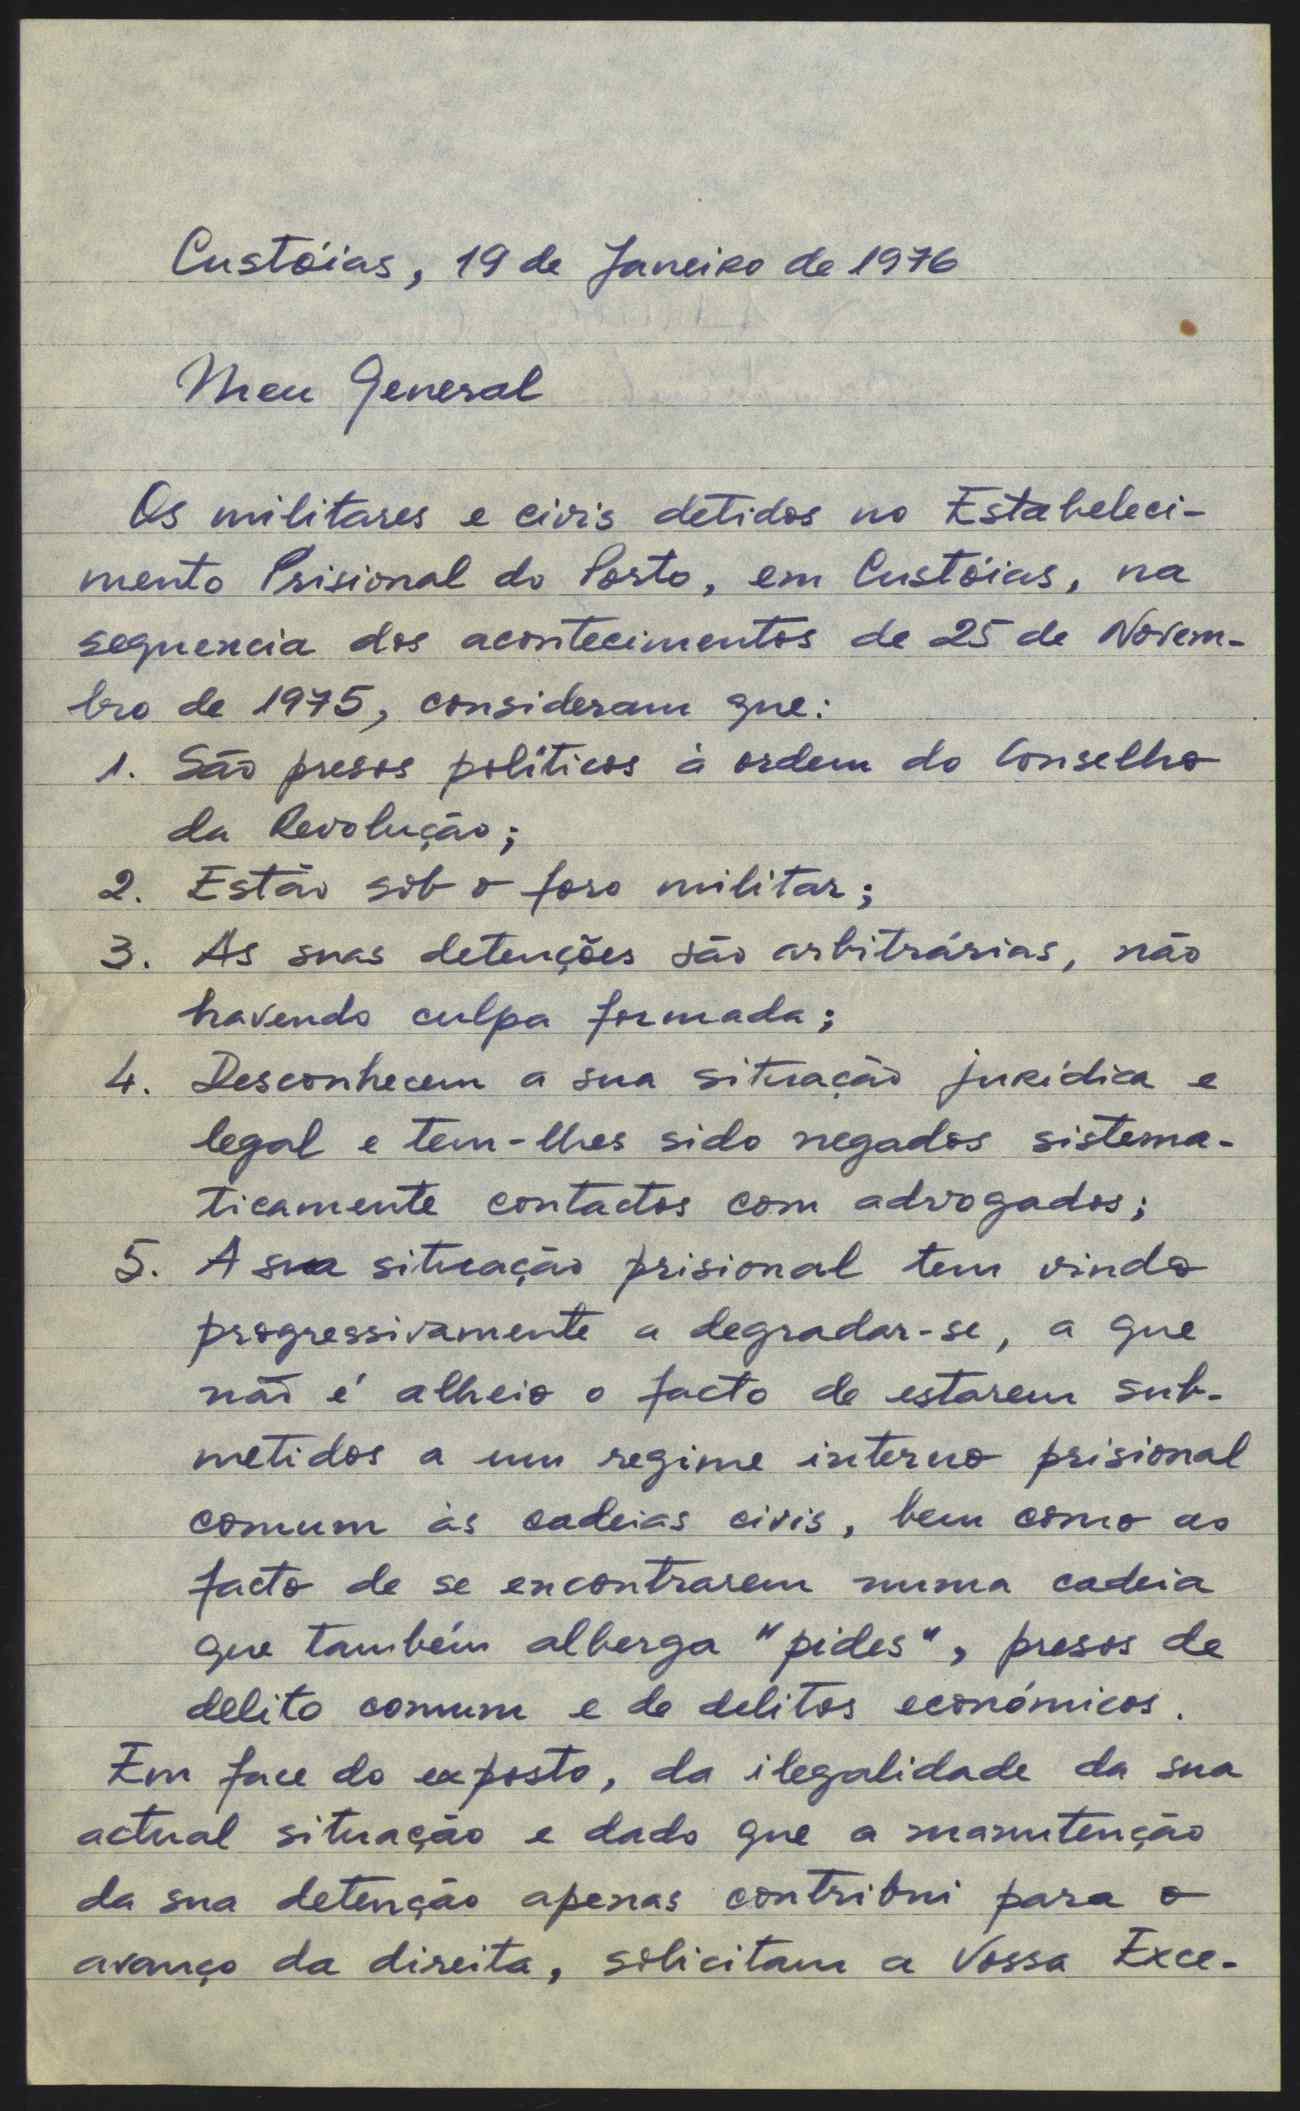 Custóias, 19 de Janeiro de 1976
Meu General
Os militares e civis detidos no Estabeleci-
mento Prisional do Porto, em Custóias, na
sequencia dos acontecimentos de 25 de Novem-
bro de 1975, consideram que:
1. São presos políticos à ordem do Conselho
da Revolução;
2. Estão sob o foro militar;
3. As suas detenções são arbitrárias, não
havendo culpa formada;
4. Desconhecem a sua situação jurídica e
legal e tem-lhes sido negados sistema-
ticamente contactos com advogados;
5. A sua situação prisional tem vindo
progressivamente a degradar-se, a que
não é alheio o facto de estarem sub-
metidos a um regime interno prisional
comum às cadeias civis, bem como ao
facto de se encontrarem numa cadeia
que também alberga "pides", presos de
delito comum e de delitos económicos.
Em face do exposto, da ilegalidade da sua
actual situação e dado que a manutenção
da sua detenção apenas contribui para o
avanço da direita, solicitam a Vossa Exce-